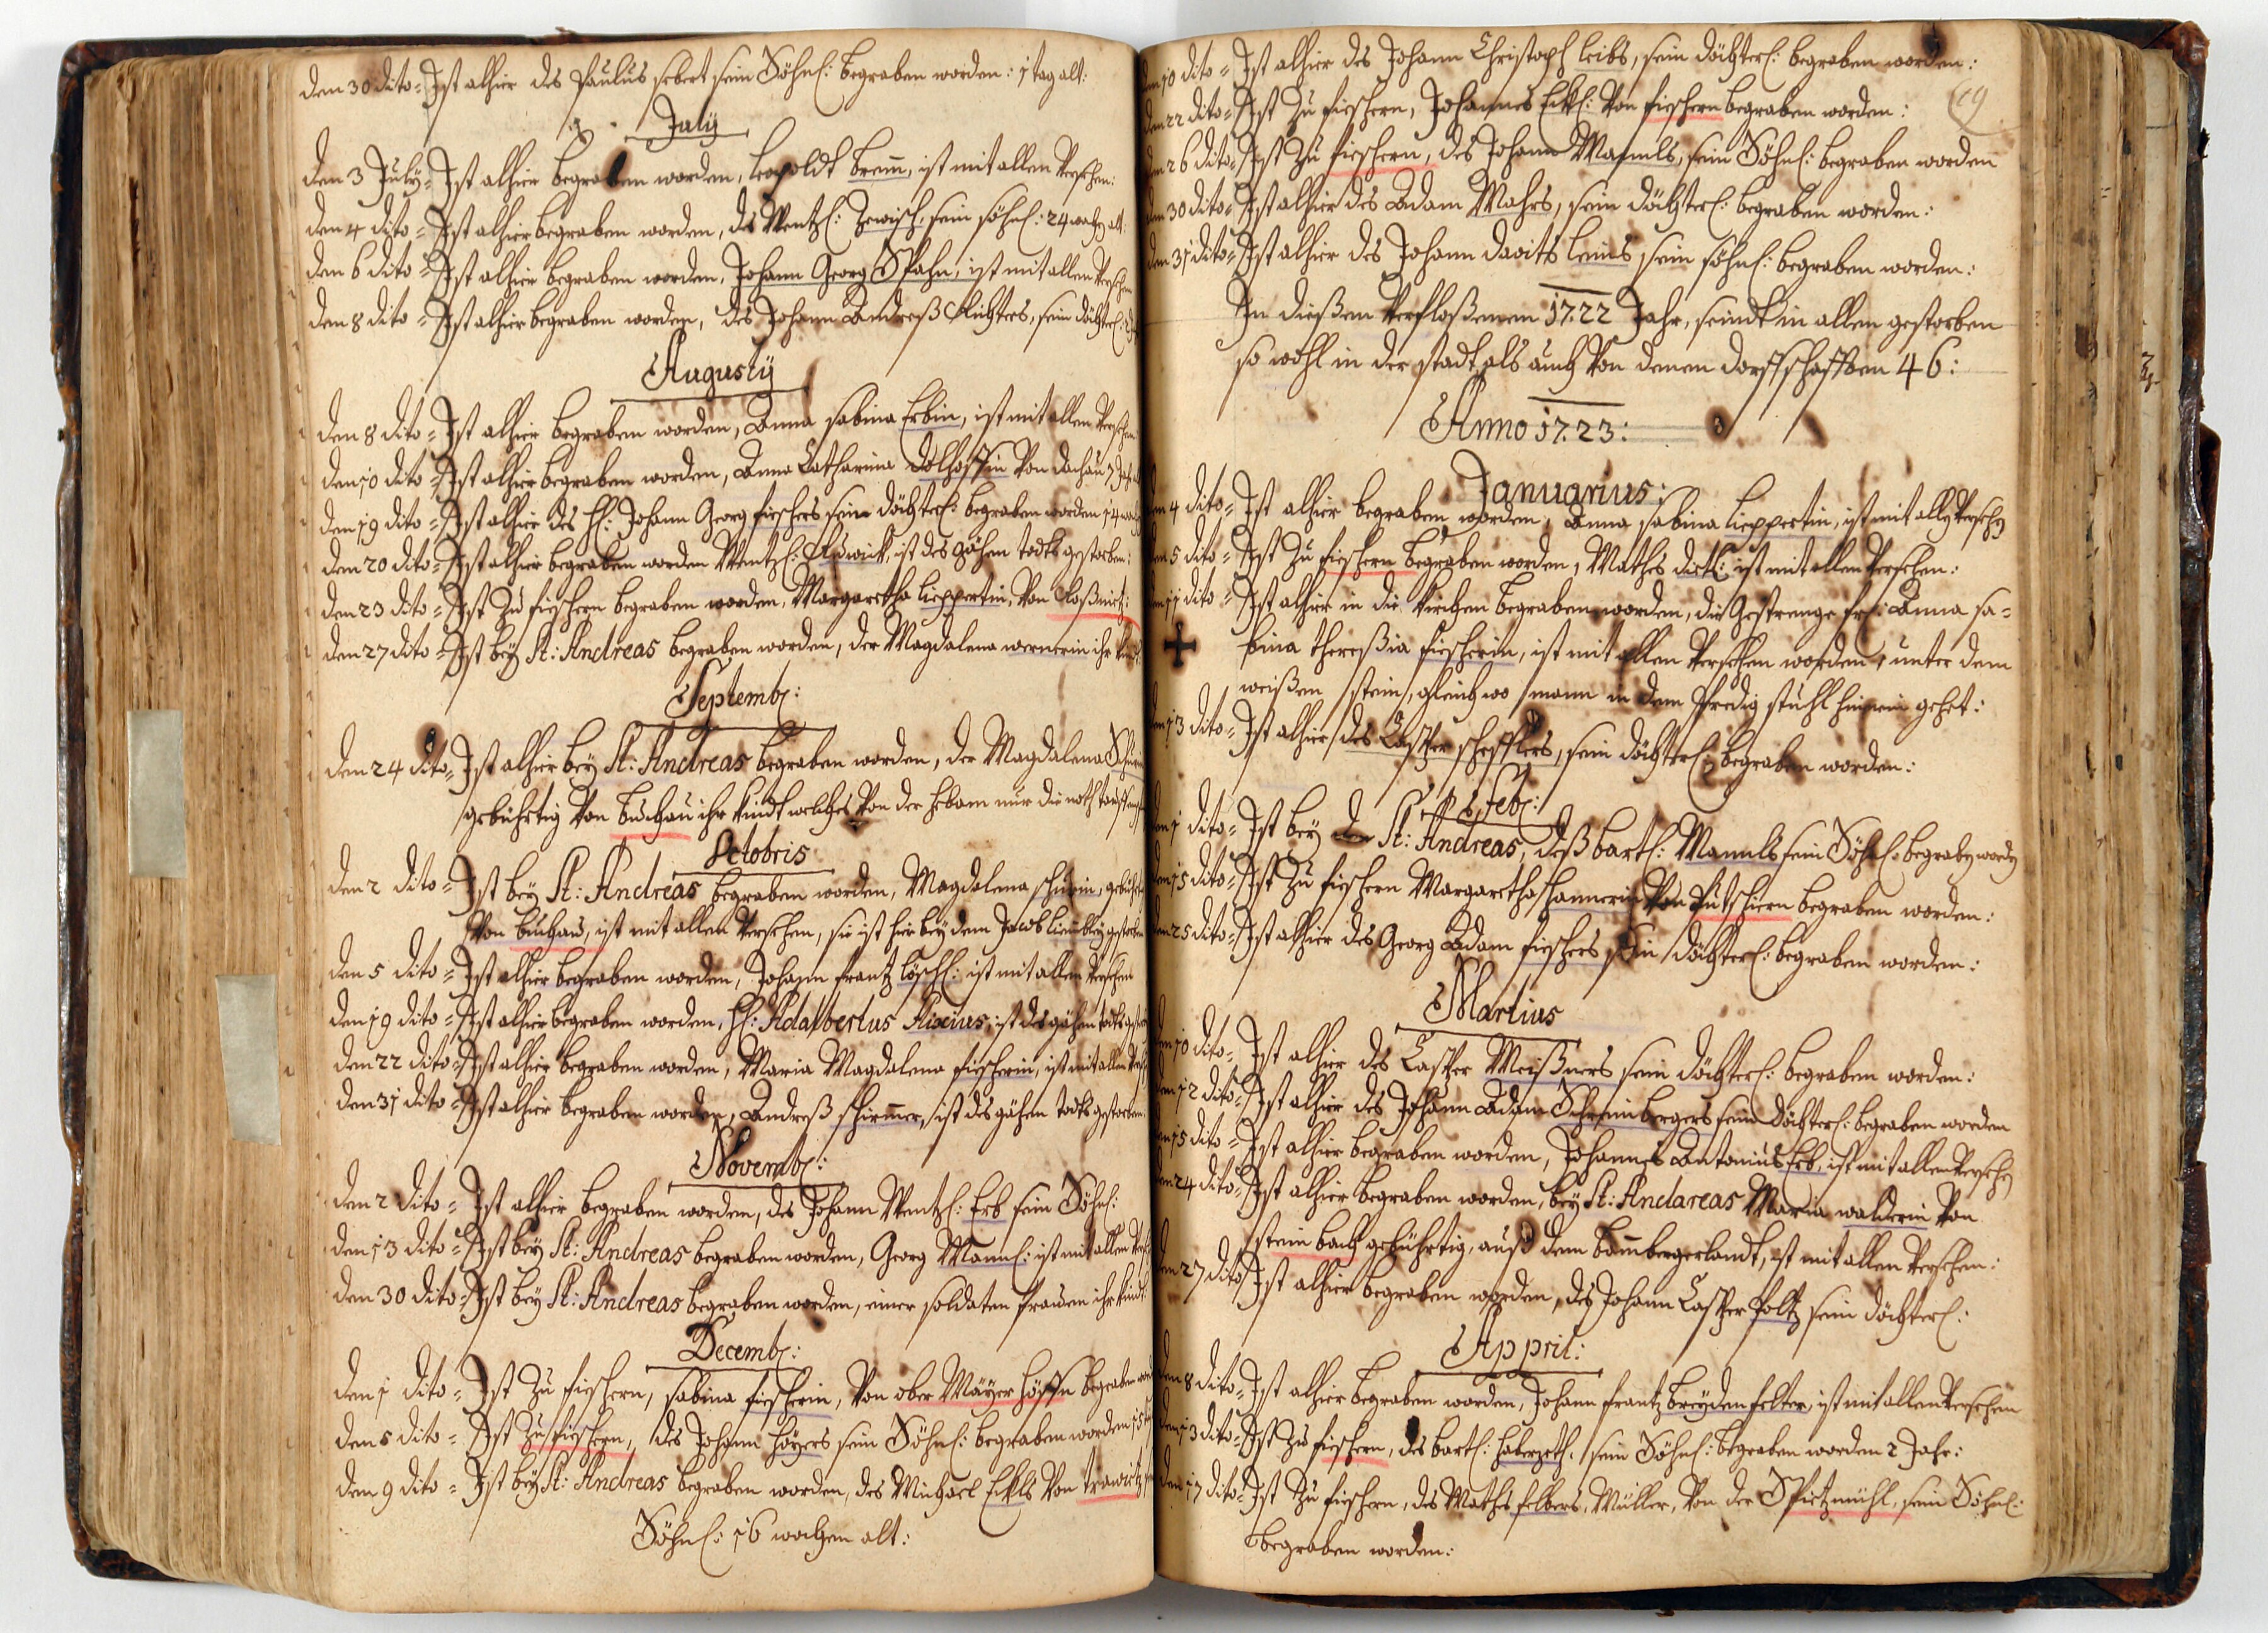 den 30 dito = Ist alhier des Paulus sebert sein Söhnl: begraben worden: 1 tag alt:
July
den 3 July = Ist alhier begraben worden, Leopoldt Brem̄, ist mit allen Versehen:
den 4 dito = Ist alhier begraben worden, des Wentzl: Zewisch, sein söhnl: 24 wochen alt:
den 6 dito = Ist alhier begraben worden, Johann Georg Spahn, ist mit allen Versehen
den 8 dito = Ist alhier begraben worden, des Johann Andreß Richters, sein döchterl:
Augusty
den 8 dito = Ist alhier begraben worden, Anna sabina Erbin, ist mit allen Versehen
den 10 dito = Ist alhier begraben worden, Anna Catharina dolhoffin Von dachau 3 Jahr
den 19 dito = Ist alhier des H: Johann Georg fieschers sein döchterl: begraben worden 14
den 20 dito = Ist alhier begraben worden Wentzl: ist des gähen todts gestorben:
den 23 dito = Ist Zu fieschern begraben worden, Margaretha Lieppertin, Von
den 27 dito = Ist bey St: Andreas begraben worden, der Magdalena wernerin ihr kindt
Septemb:
den 24 dito = Ist alhier bey St: Andreas begraben worden, der Magdalena
gebührtig Von buchau ihr kindt welches Von der hebam nur die noth tauff
Octobris
den 2 dito = Ist bey St: Andreas begraben worden, Magdalena schurin, gebührtig
Von buchau, ist mit allen Versehen, sie ist hier bey dem Jacob gestorben
den 5 dito = Ist alhier begraben worden, Johann frantz löschl: ist mit allen Versehen
den 19 dito = Ist alhier begraben worden, H: Adalbertus Aixius, ist des gähen todts gestorben
den 22 dito = Ist alhier begraben worden, Maria Magdalena fiescherin, ist mit allen
den 31 dito = Ist alhier begraben worden, Andreß schirmer, ist des gähen todts gestorben
Novemb:
den 2 dito = Ist alhier begraben worden, des Johann Wentzl: Erb sein Söhnl:
den 13 dito = Ist bey St: Andreas begraben worden, Georg Mannl: ist mit allen
den 30 dito = Ist bey St: Andreas begraben worden, einer soldaten frauen ihr kindt:
Decemb:
den 1 dito = Ist Zu fieschern, sabina fiescherin, Von ober Mäyer höffn begraben
den 5 dito = Ist Zu fieschern, des Johann Höyers sein Söhnl: begraben worden 15
den 9 dito = Ist bey St: Andreas begraben worden, des Michael Eckls Von trawitz
Söhnl: 16 wochen alt:
19
den 10 dito = Ist alhier des Johann Christoph leibs, sein döchterl: begraben worden:
den 22 dito = Ist Zu fieschern, Johannes Eckl: Von fieschern begraben worden:
den 26 dito = Ist Zu fieschern, des Johann Mannls, sein Söhnl: begraben worden
den 30 dito = Ist alhier des Adam Mahrs, sein döchterl: begraben worden:
den 31 dito = Ist alhier des Johann davits leins sein söhnl: begraben worden:
In dießem Verfloßenem 1722 Jahr, seindt in allem gestorben
so wohl in der stadt als auch Von denen dorffschafften 46:
Anno 1723:
Januarius:
den 4 dito = Ist alhier begraben worden, Anna sabina Lieppertin, ist mit allen Versehen
den 5 dito = Ist Zu fieschern begraben worden, Mathes dietl: ist mit allen Versehen:
den 11 dito = Ist alhier in die kirchen begraben worden, die Gestrenge fr: Anna sa-
bina thereßia fiescherin, ist mit allen Versehen worden, unter dem
weißen stein, gleich wo mann in dem Predig stuhl hinein gehet:
den 13 dito = Ist alhier des Casper schefflers, sein döchterl: begraben worden:
Feb:
den 1 dito = Ist bey St: Andreas, deß bartl: Mannls sein Söhnl: begraben worden
den 15 dito = Ist Zu fieschern Margaretha Hannerin Von Putschiern begraben worden:
den 25 dito = Ist alhier des Georg Adam fieschers sein döchterl: begraben worden:
Martius
den 10 dito = Ist alhier des Casper Meißners sein döchterl: begraben worden:
den 12 dito = Ist alhier des Johann Adam Schreinbergers sein döchterl: begraben worden
den 15 dito = Ist alhier begraben worden, Johannes Antonius Erb, ist mit allen Versehen
den 24 dito = Ist alhier begraben worden, bey St: Andareas Maria walderin Von
steinbach gebührtig, auß dem bambergerlandt, ist mit allen Versehen:
den 27 dito Ist alhier begraben worden, des Johann Casper Poltz sein döchterl:
Appril:
den 8 dito = Ist alhier begraben worden, Johann frantz breydenfelter, ist mit allen Versehen
den 13 dito = Ist Zu fieschern, des bartl: haberzetl, sein Söhnl: begraben worden 2 Jahr:
den 17 dito = Ist Zu fieschern, des Mathes felbers, Müller, Von der Spitzmühl, sein Söhnl:
begraben worden: